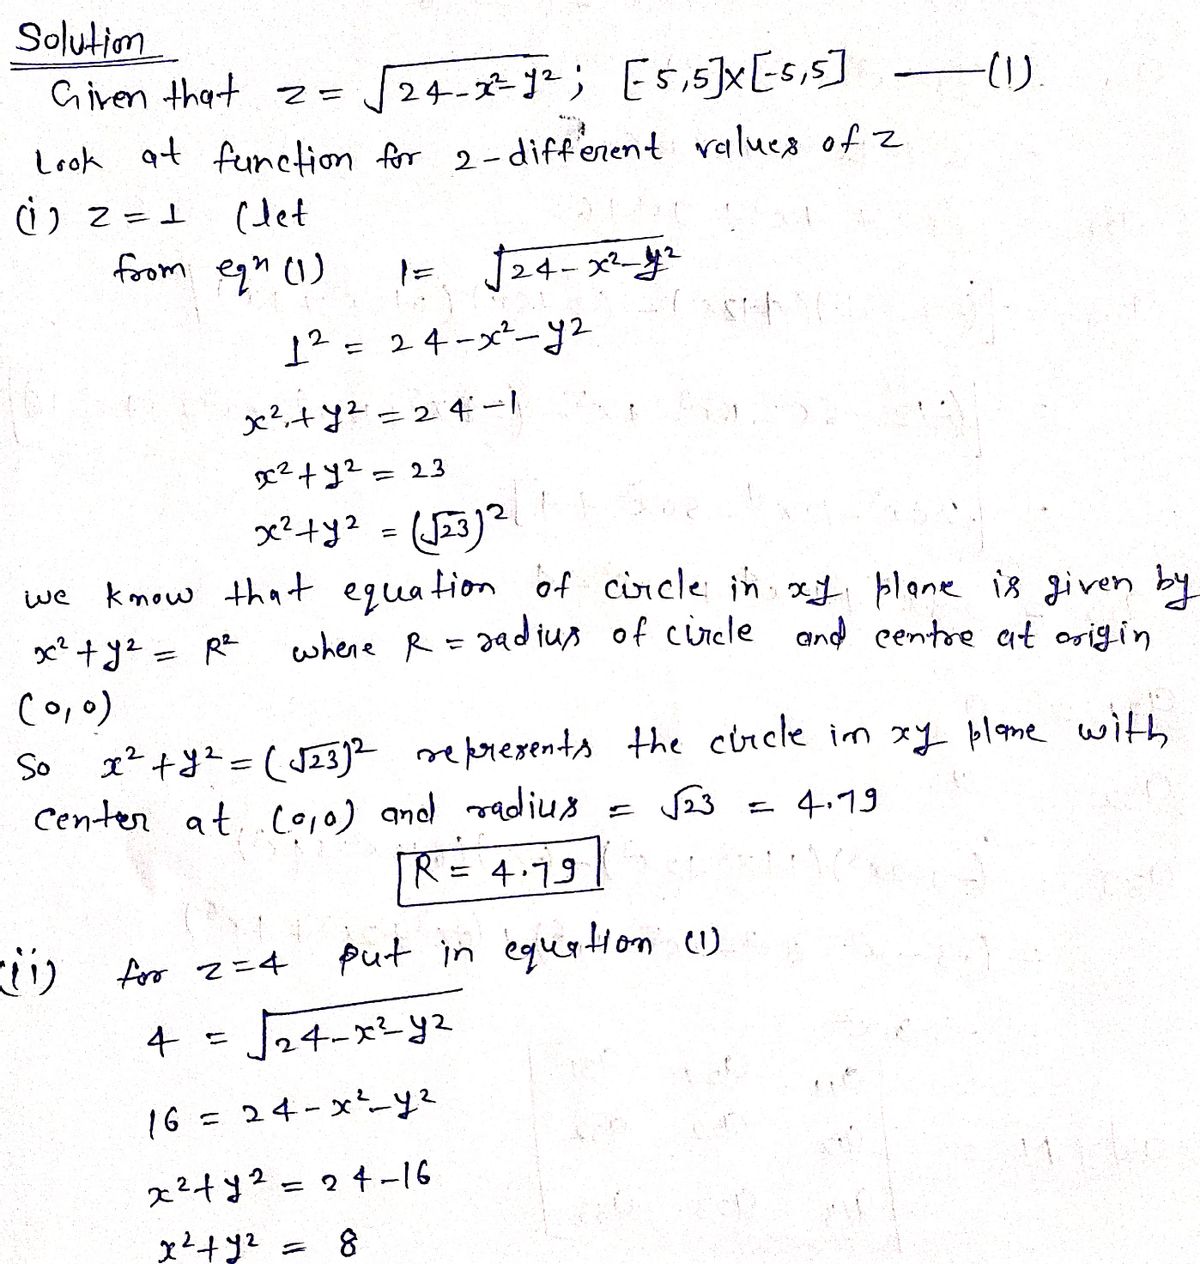 Solution
Given that z = √24-x²-y² ; [-5,5]×[-5,5] —(1).
Look at function for 2-different values of z
(i) z = 1 (let
from eqn (1) 1 = √24-x²-y²
1² = 24-x²-y²
x²+y² = 24-1
x²+y² = 23
x²+y² = (√23)²
we know that equation of circle in xy plane is given by
x²+y² = R² where R = radius of circle and centre at origin
(0,0)
So x²+y² = (√23)² represents the circle in xy plane with
center at (0,0) and radius = √23 = 4.79
R = 4.79
(ii) for z=4 put in equation (1)
4 = √24-x²-y²
16 = 24-x²-y²
x²+y² = 24-16
x²+y² = 8